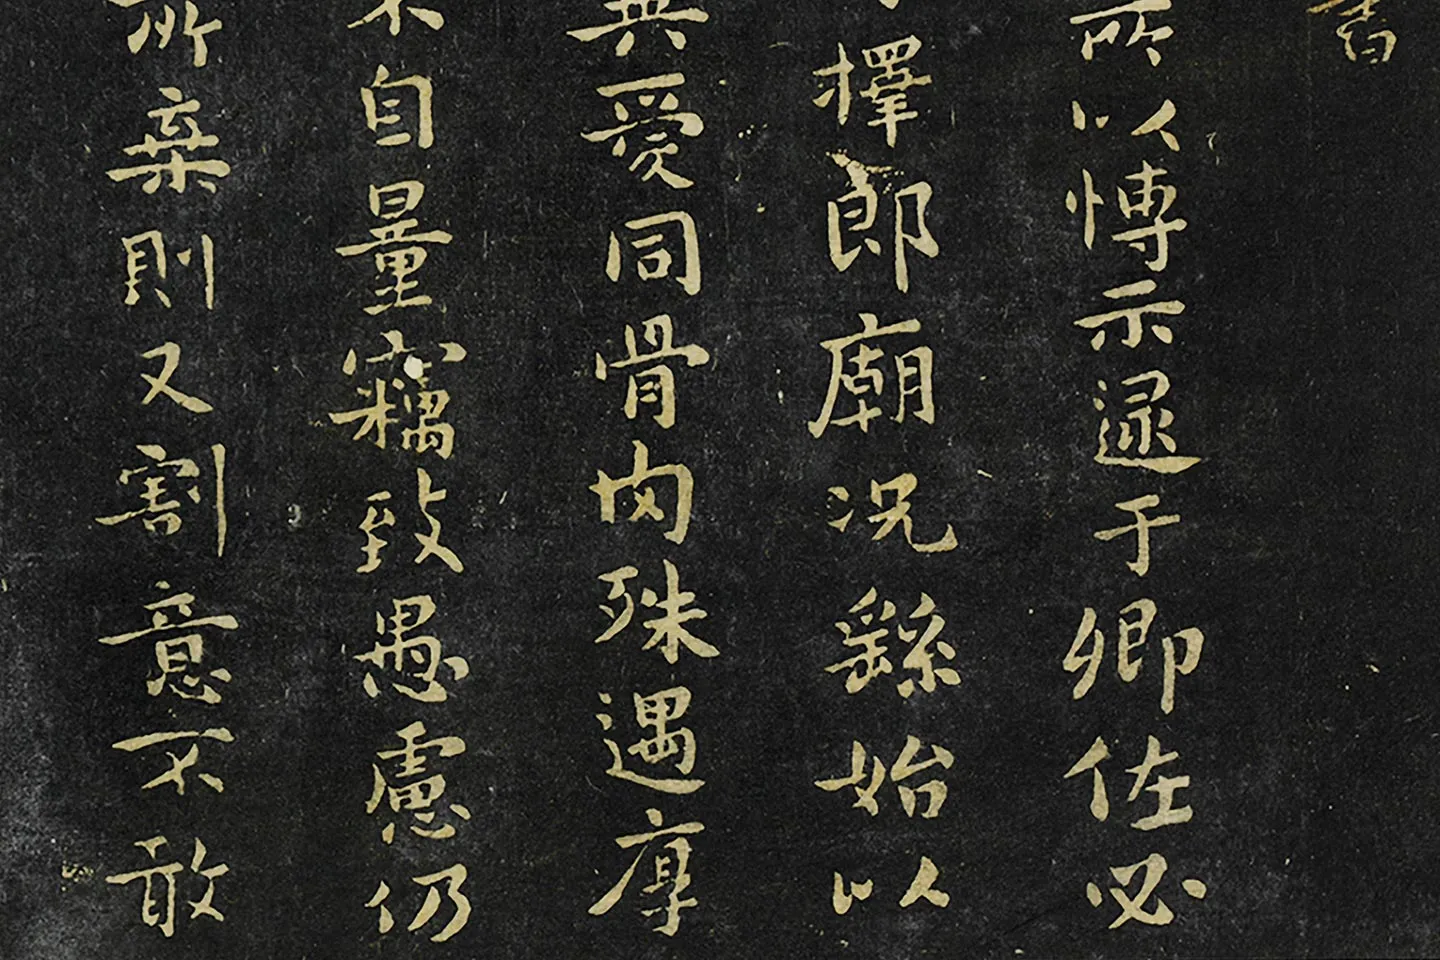 書
所以愽示逮于卿佐必
擇郎廟况繇始以
異愛同骨肉殊遇厚
不自量竊致愚慮仍
所棄則又割意不敢